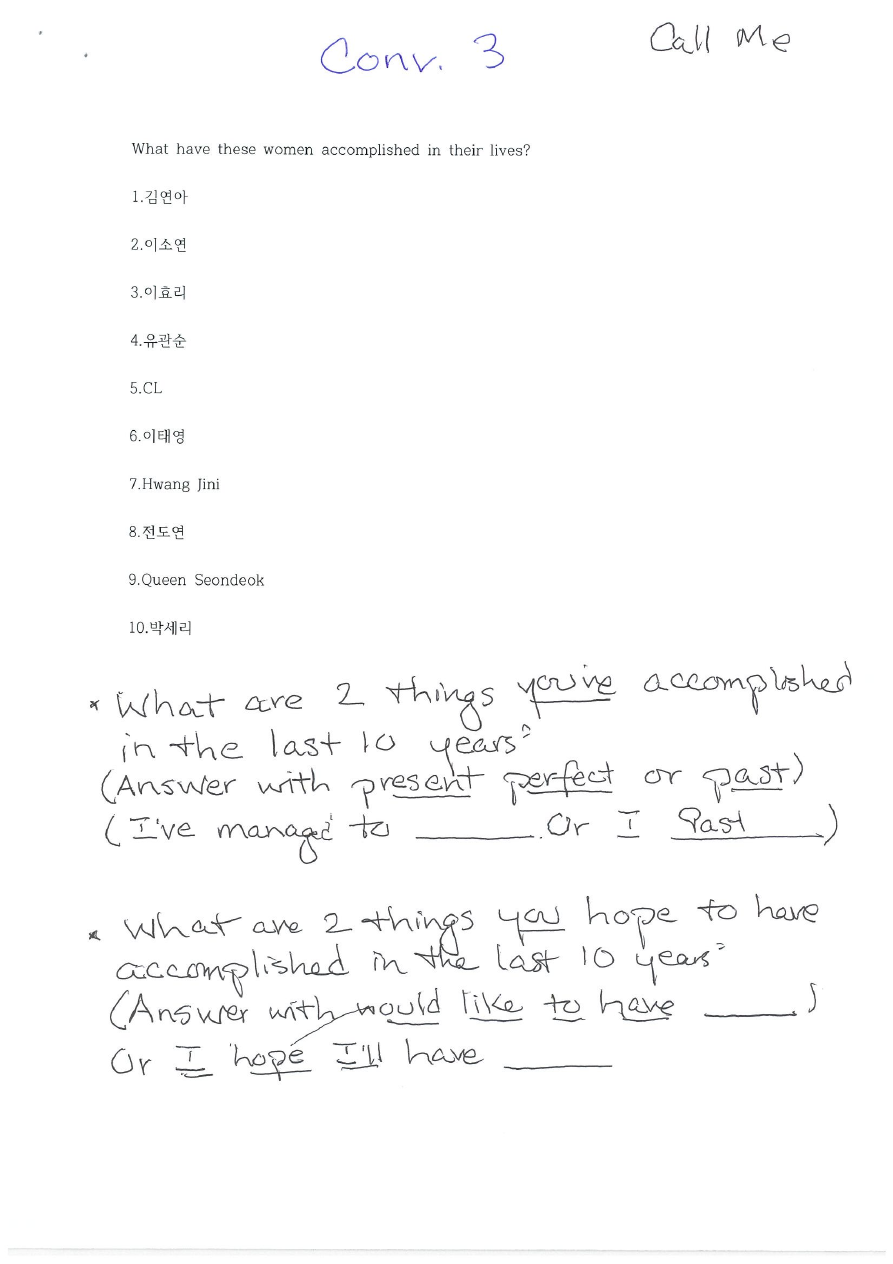 Conv. 3
Call Me
What have these women accomplished in their lives?
1.김연아
2.이소연
3.이효리
4.유관순
5.CL
6.이태영
7.Hwang Jini
8.전도연
9.Queen Seondeok
10.박세리
* What are 2 things you've accomplished
in the last 10 years?
(Answer with present perfect or past)
(I've managed to ______. Or I Past ______)
* What are 2 things you hope to have
accomplished in the last 10 years?
(Answer with would like to have ______.)
Or I hope I'll have ______